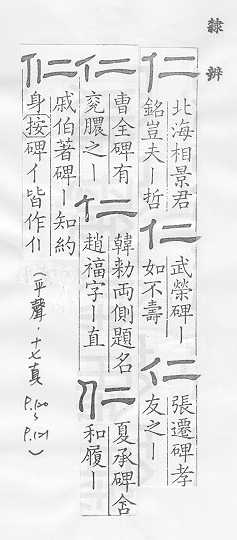 隸辨
仁
北海相景君
銘豈夫丨哲
仁
武榮碑丨
如不壽
仁
張遷碑孝
友之丨
仁
曹全碑有
兗膿之丨
仁
韓勑兩側題名
趙福字丨直
仁
夏承碑含
和履丨
仁
戚伯著碑丨知約
身按碑亻皆作
(平聲・十七真 P.120~P.121)